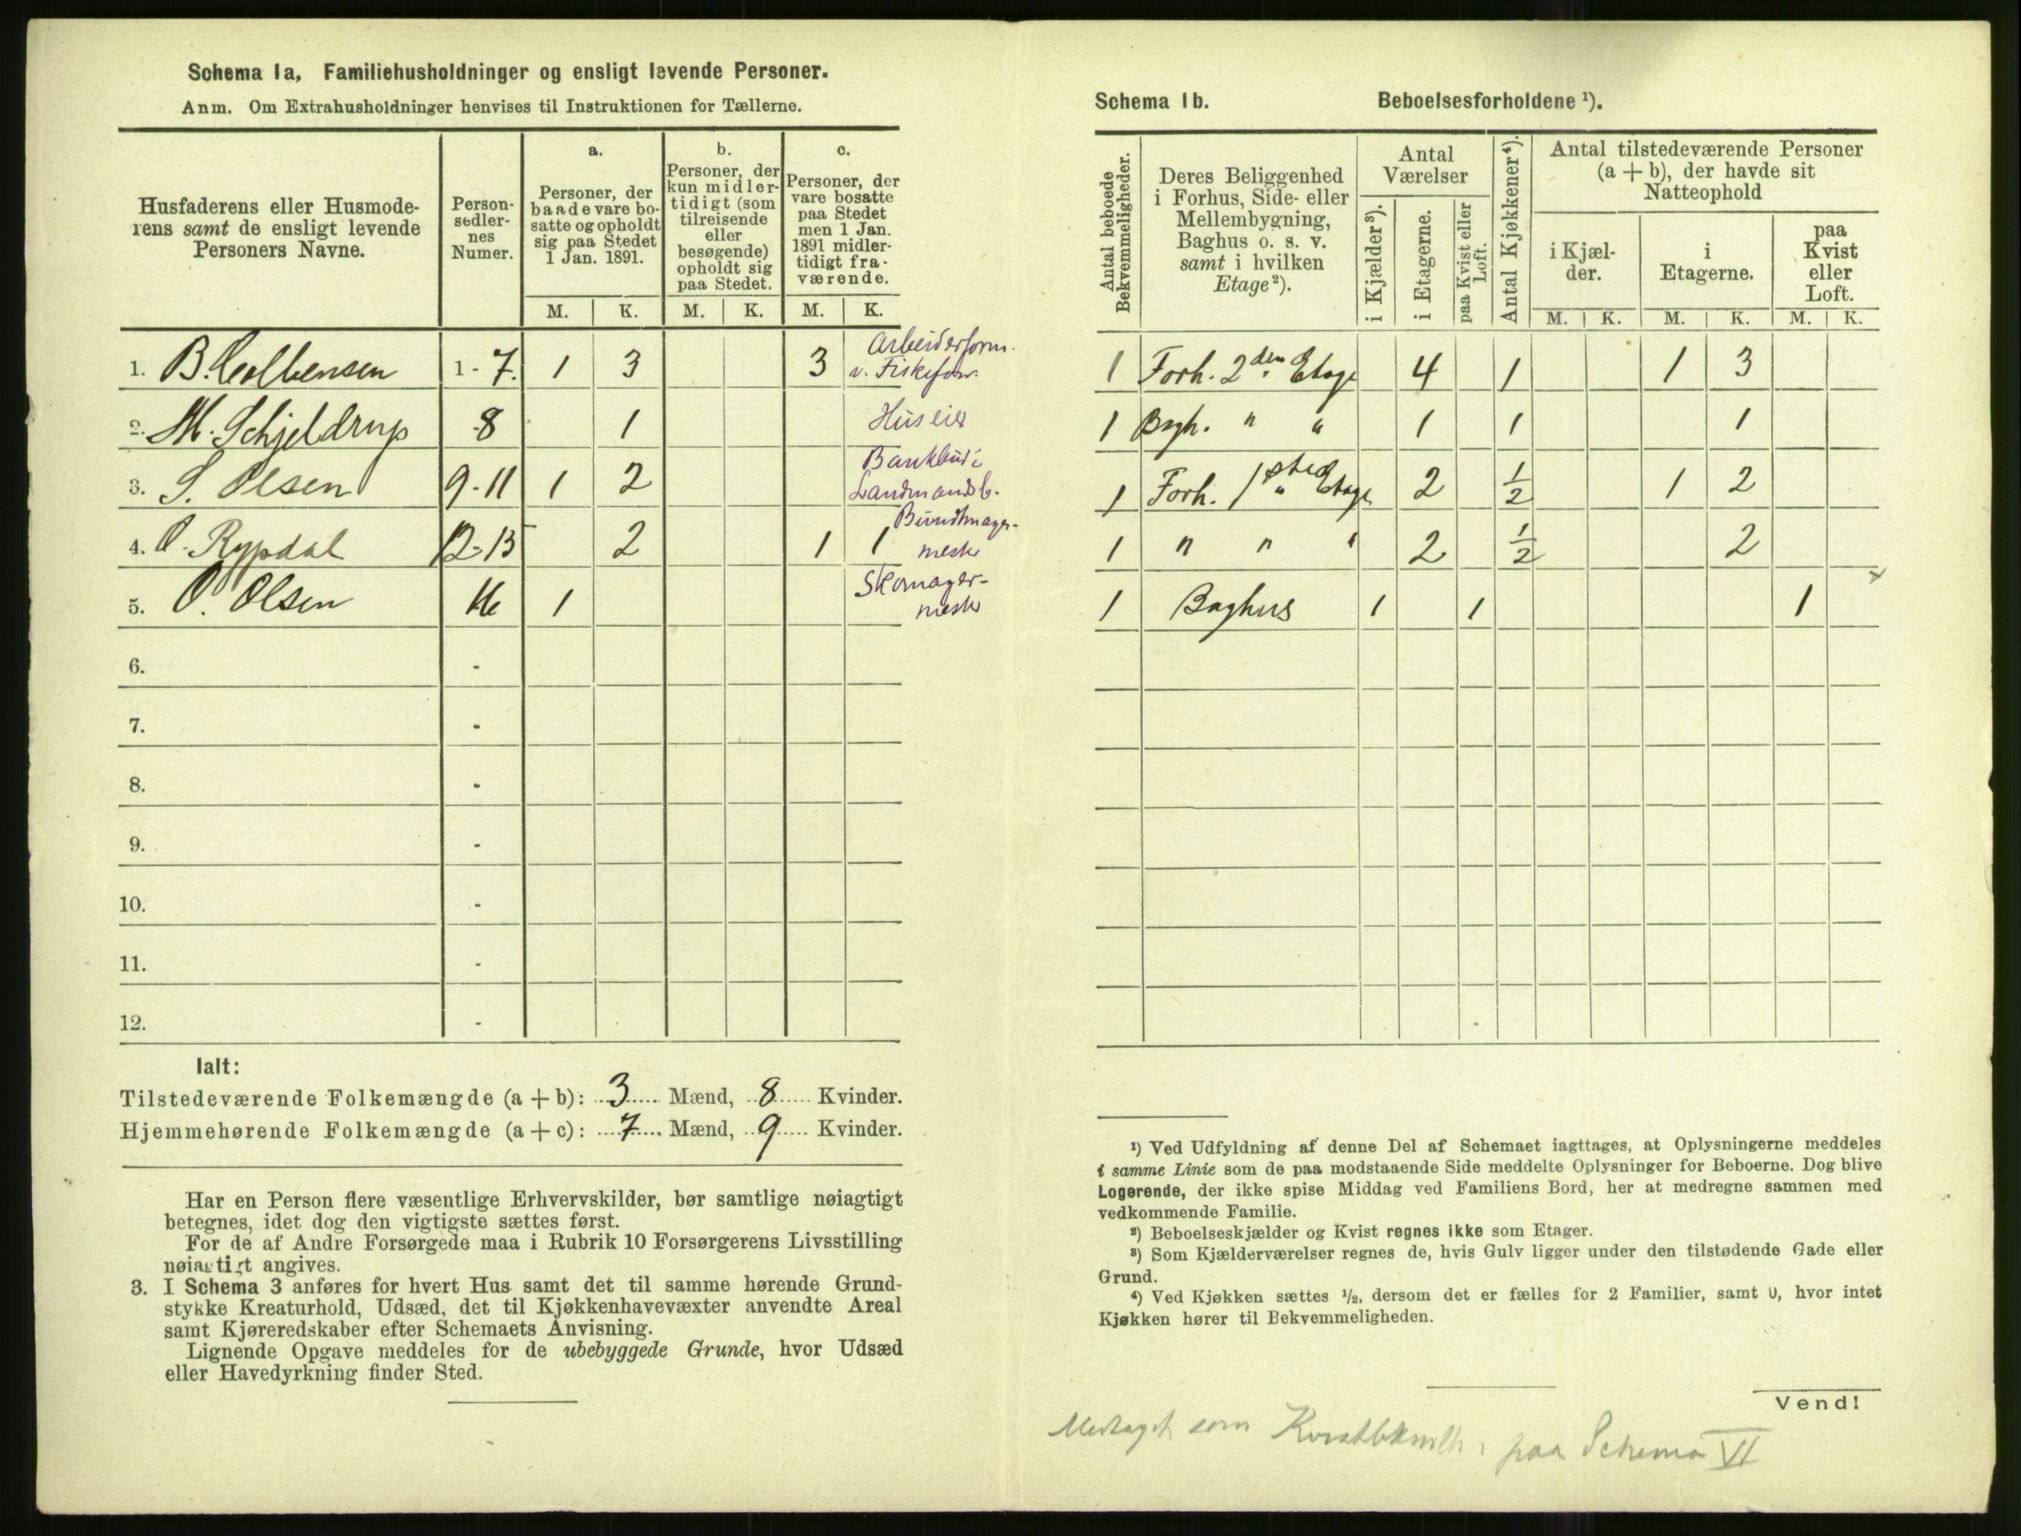 Schema 1a, Familiehusholdninger og ensligt levende Personer.
Anm. Om Extrahusholdninger henvises til Instruktionen for Tællerne.
Husfaderens eller Husmode-
rens samt de ensligt levende
Personers Navne.
Person-
sedler-
nes
Numer.
a.
Personer, der
baade vare bo-
satte og opholdt
sig paa Stedet
1 Jan. 1891.
b.
Personer, der
kun midler-
tidigt (som
tilreisende
eller
besøgende)
opholdt sig
paa Stedet.
c.
Personer, der
vare bosatte
paa Stedet
men 1 Jan.
1891 midler-
tidigt fra-
værende.
M. K. M. K. M. K.
1. B. Colbensen 1-7. 1 3 3 Arbeiderform.
v. Fiskeforr.
2. M. Schjeldrup -8 1 Huseier
3. S. Olsen 9-11 1 2 Bankbud i
Landmandsb.
4. O. Rypdal 12-15 2 1 1 Bundtmager-
mester
5. O. Olsen 16 1 Skomager-
mester
6. -
7. -
8. -
9. -
10. -
11. -
12. -
Ialt:
Tilstedeværende Folkemængde (a + b): 3 Mænd, 8 Kvinder.
Hjemmehørende Folkemængde (a + c): 7 Mænd, 9 Kvinder.
Har en Person flere væsentlige Erhvervskilder, bør samtlige nøiagtigt
betegnes, idet dog den vigtigste sættes først.
For de af Andre Forsørgede maa i Rubrik 10 Forsørgerens Livsstilling
nøiagtigt angives.
3. I Schema 3 anføres for hvert Hus samt det til samme hørende Grund-
stykke Kreaturhold, Udsæd, det til Kjøkkenhavevæxter anvendte Areal
samt Kjøreredskaber efter Schemaets Anvisning.
Lignende Opgave meddeles for de ubebyggede Grunde, hvor Udsæd
eller Havedyrkning finder Sted.
Schema 1b. Beboelsesforholdene ¹).
Antal beboede
Bekvemmeligheder.
Deres Beliggenhed
i Forhus, Side- eller
Mellembygning,
Baghus o. s. v.
samt i hvilken
Etage²).
Antal
Værelser
i Kjælder³).
i Etagerne.
paa Kvist eller
Loft.
Antal Kjøkkener⁴).
Antal tilstedeværende Personer
(a + b), der havde sit
Natteophold
i Kjæl-
der.
i
Etagerne.
paa
Kvist
eller
Loft.
M. K. M. K. M. K.
1 Forh. 2den Etage 4 1 1 3
1 Bagh. " " 1 1 1
1 Forh. 1ste " Etage 2 1/2 1 2
1 " " " 2 1/2 2
1 Baghus 1 1 1
¹) Ved Udfyldning af denne Del af Schemaet iagttages, at Oplysningerne meddeles
i samme Linie som de paa modstaaende Side meddelte Oplysninger for Beboerne. Dog blive
Logerende, der ikke spise Middag ved Familiens Bord, her at medregne sammen med
vedkommende Familie.
²) Beboelseskjælder og Kvist regnes ikke som Etager.
³) Som Kjælderværelser regnes de, hvis Gulv ligger under den tilstødende Gade eller
Grund.
⁴) Ved Kjøkken sættes ¹/₂, dersom det er fælles for 2 Familier, samt 0, hvor intet
Kjøkken hører til Bekvemmeligheden.
Vend!
Medtaget som paa Schema VI